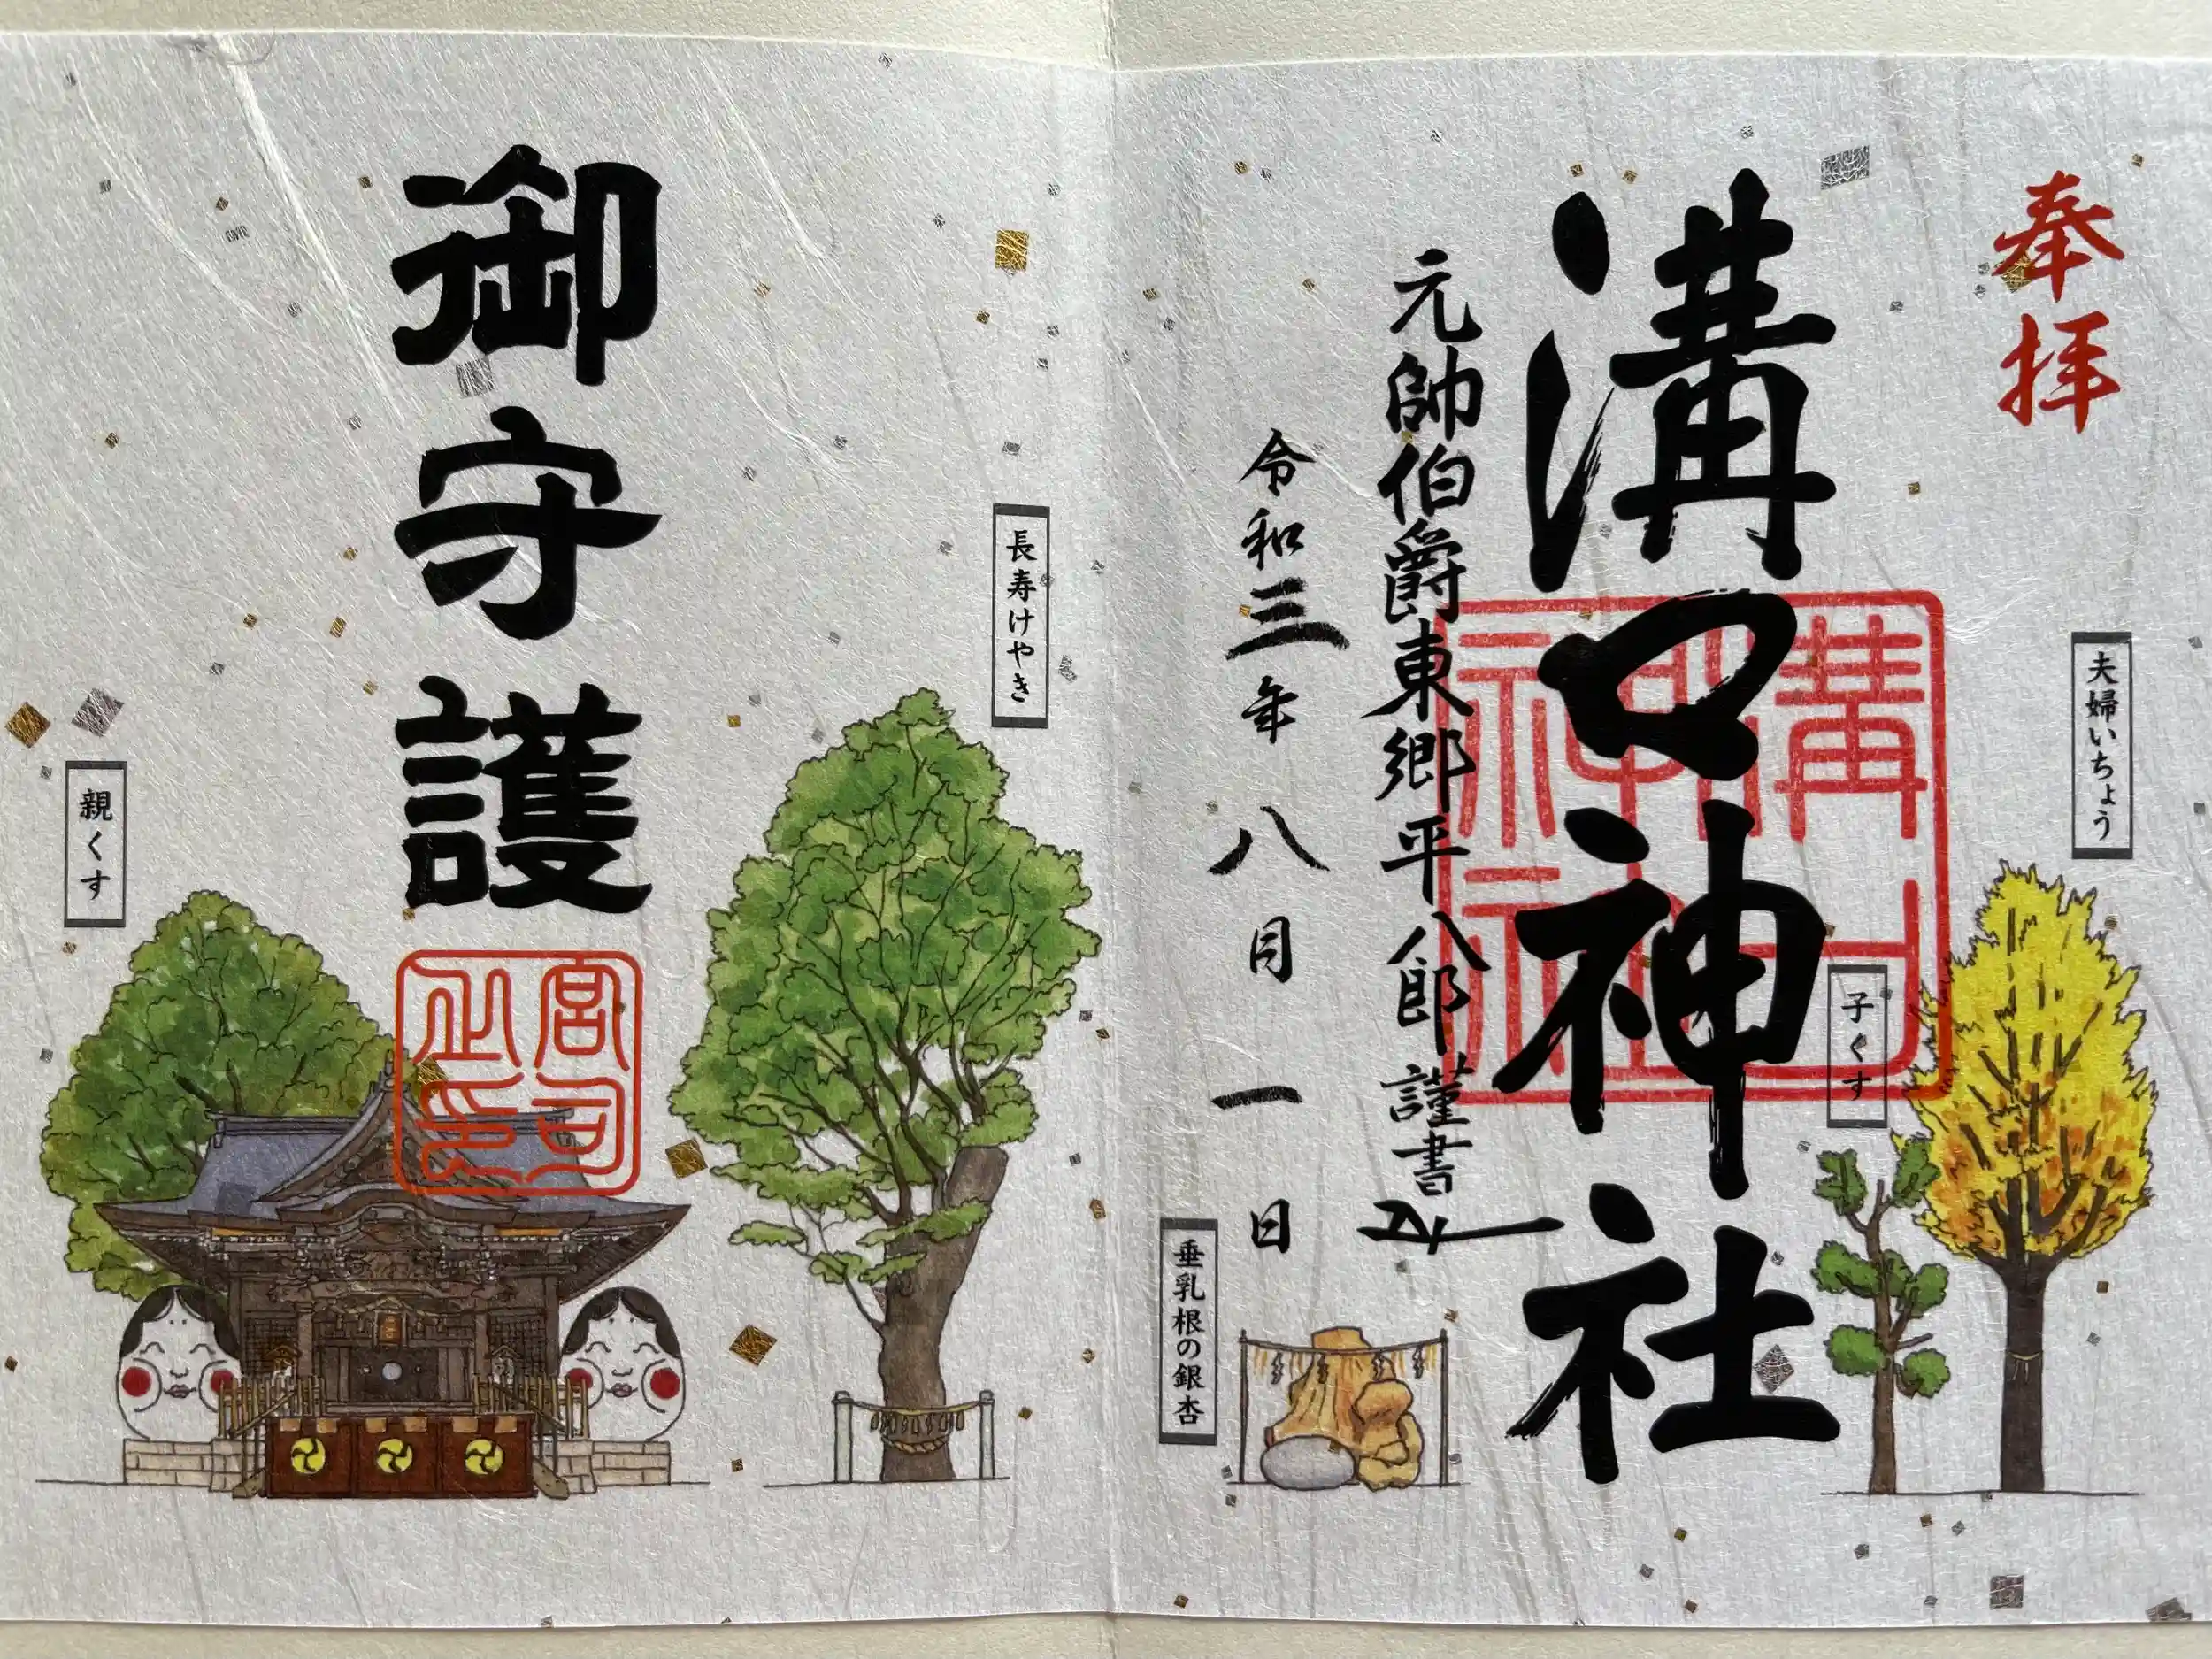 奉拝
夫婦いちょう
子ぐす
溝口神社
溝口神社
元帥伯爵東郷平八郎謹書
令和三年八月一日
垂乳根の銀杏
長寿けやき
御守護
宮司之印
親くす